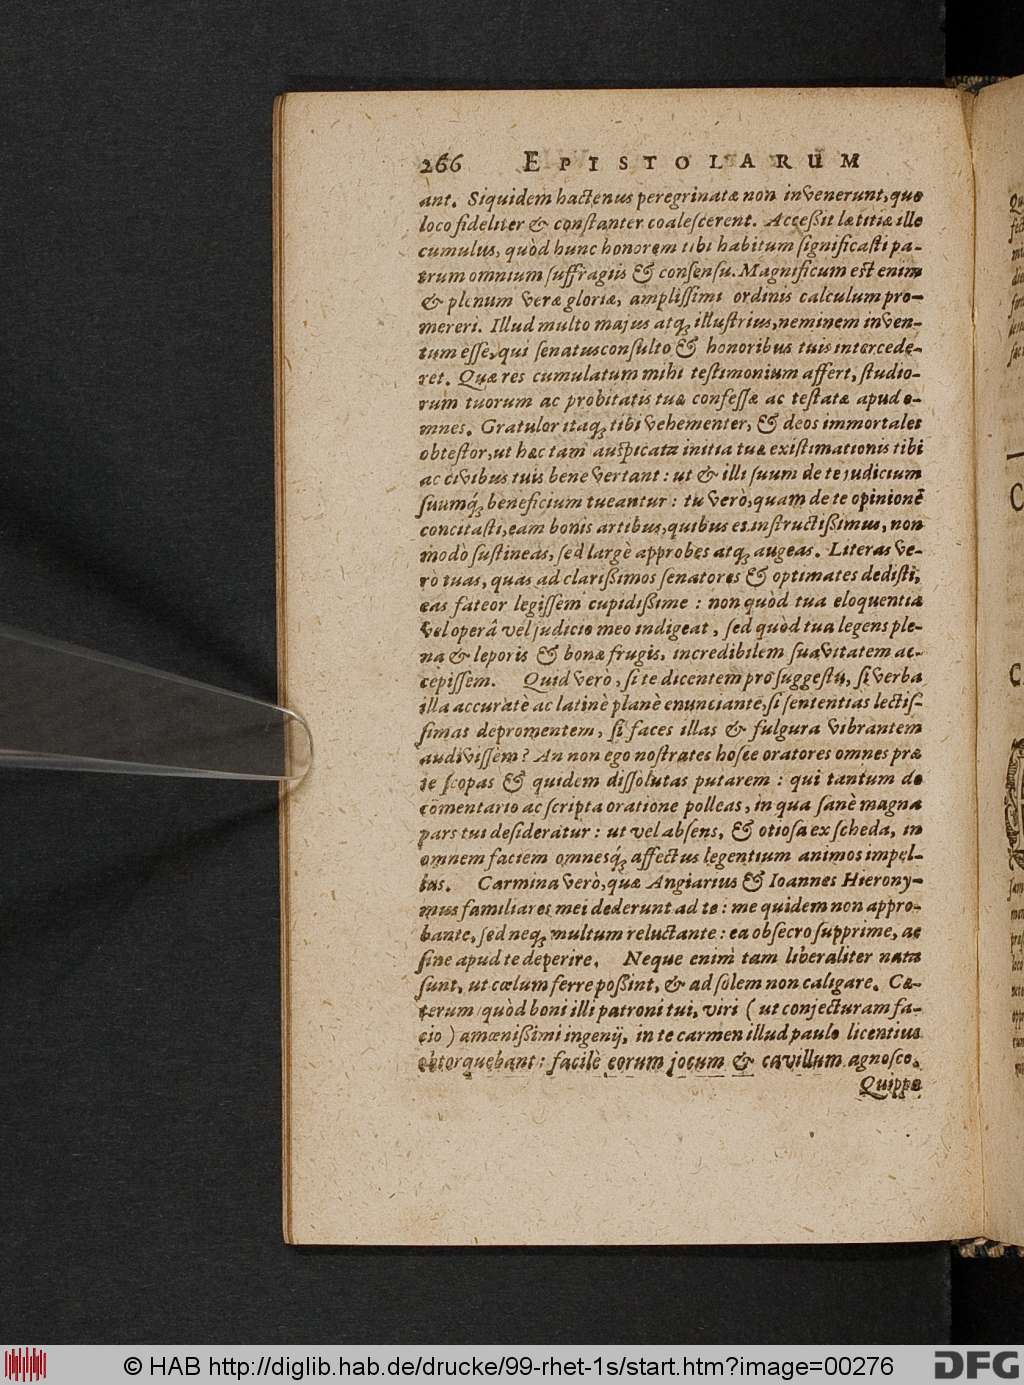 266 EPISTOLARUM
ant. Siquidem hactenus peregrinatæ non invenerunt, quo
loco fideliter & constanter coalescerent. Acceßit lætitiæ ille
cumulus, quòd hunc honorem tibi habitum significasti pa-
trum omnium suffragiis & consensu. Magnificum est enim
& plenum veræ gloriæ, amplissimi ordinis calculum pro-
mereri. Illud multo majus atq; illustrius, neminem inven-
tum esse, qui senatusconsulto & honoribus tuis intercede-
ret. Quæ res cumulatum mihi testimonium affert, studio-
rum tuorum ac probitatis tuæ confessæ ac testatæ apud o-
mnes. Gratulor itaq; tibi vehementer, & deos immortales
obtestor, ut hæc tam auspicata initia tuæ existimationis tibi
ac civibus tuis bene vertant: ut & illi suum de te judicium
suumq́; beneficium tueantur: tu verò, quam de te opinionē
concitasti, eam bonis artibus, quibus es instructißimus, non
modò sustineas, sed largè approbes atq; augeas. Literas ve-
rò tuas, quas ad clarißimos senatores & optimates dedisti,
eas fateor legissem cupidißime: non quòd tua eloquentia
vel operâ vel judicio meo indigeat, sed quòd tua legens ple-
na & leporis & bonæ frugis, incredibilem suavitatem ac-
cepissem. Quid verò, si te dicentem pro suggestu, si verba
illa accuratè ac latinè planè enunciante, si sententias lectis-
simas depromentem, si faces illas & fulgura vibrantem
audivissem? An non ego nostrates hosce oratores omnes præ
te scopas & quidem dissolutas putarem: qui tantum de
comentario ac scripta oratione polleas, in qua sanè magna
pars tui desideratur: ut vel absens, & otiosa ex scheda, in
omnem faciem omnesq́; affectus legentium animos impel-
las. Carmina verò, quæ Angiarius & Ioannes Hierony-
mus familiares mei dederunt ad te: me quidem non appro-
bante, sed neq; multum reluctante: ea obsecro supprime, ac
sine apud te deperire. Neque enim tam liberaliter nata
sunt, ut cœlum ferre poßint, & ad solem non caligare. Cæ-
terum quòd boni illi patroni tui, viri (ut conjecturam fa-
cio) amœnißimi ingenij, in te carmen illud paulo licentius
obtorquebant: facilè eorum jocum & cavillum agnosco.
Quippe
© HAB http://diglib.hab.de/drucke/99-rhet-1s/start.htm?image=00276
DFG